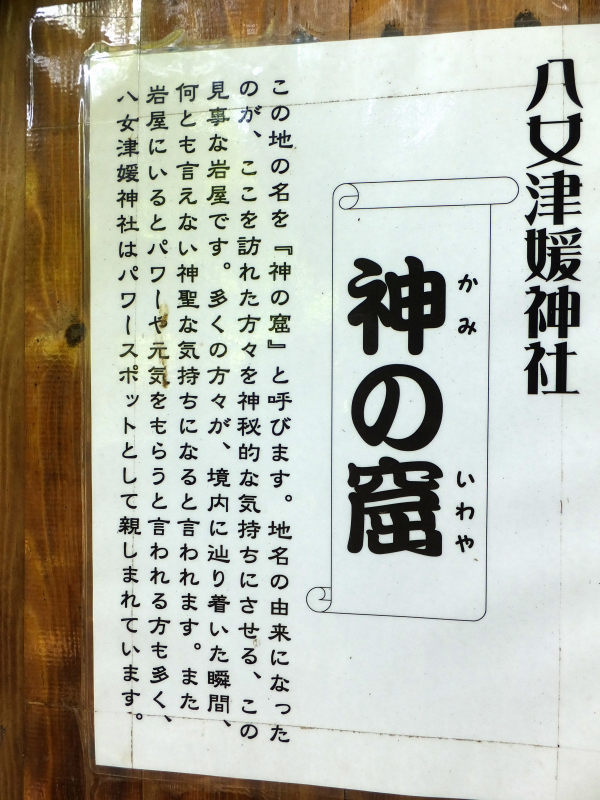 八女津媛神社
神の窟
かみ
いわや
この地の名を『神の窟』と呼びます。地名の由来になった
のが、ここを訪れた方々を神秘的な気持ちにさせる、この
見事な岩屋です。多くの方々が、境内に辿り着いた瞬間、
何とも言えない神聖な気持ちになると言われます。また
岩屋にいるとパワーや元気をもらうと言われる方も多く、
八女津媛神社はパワースポットとして親しまれています。